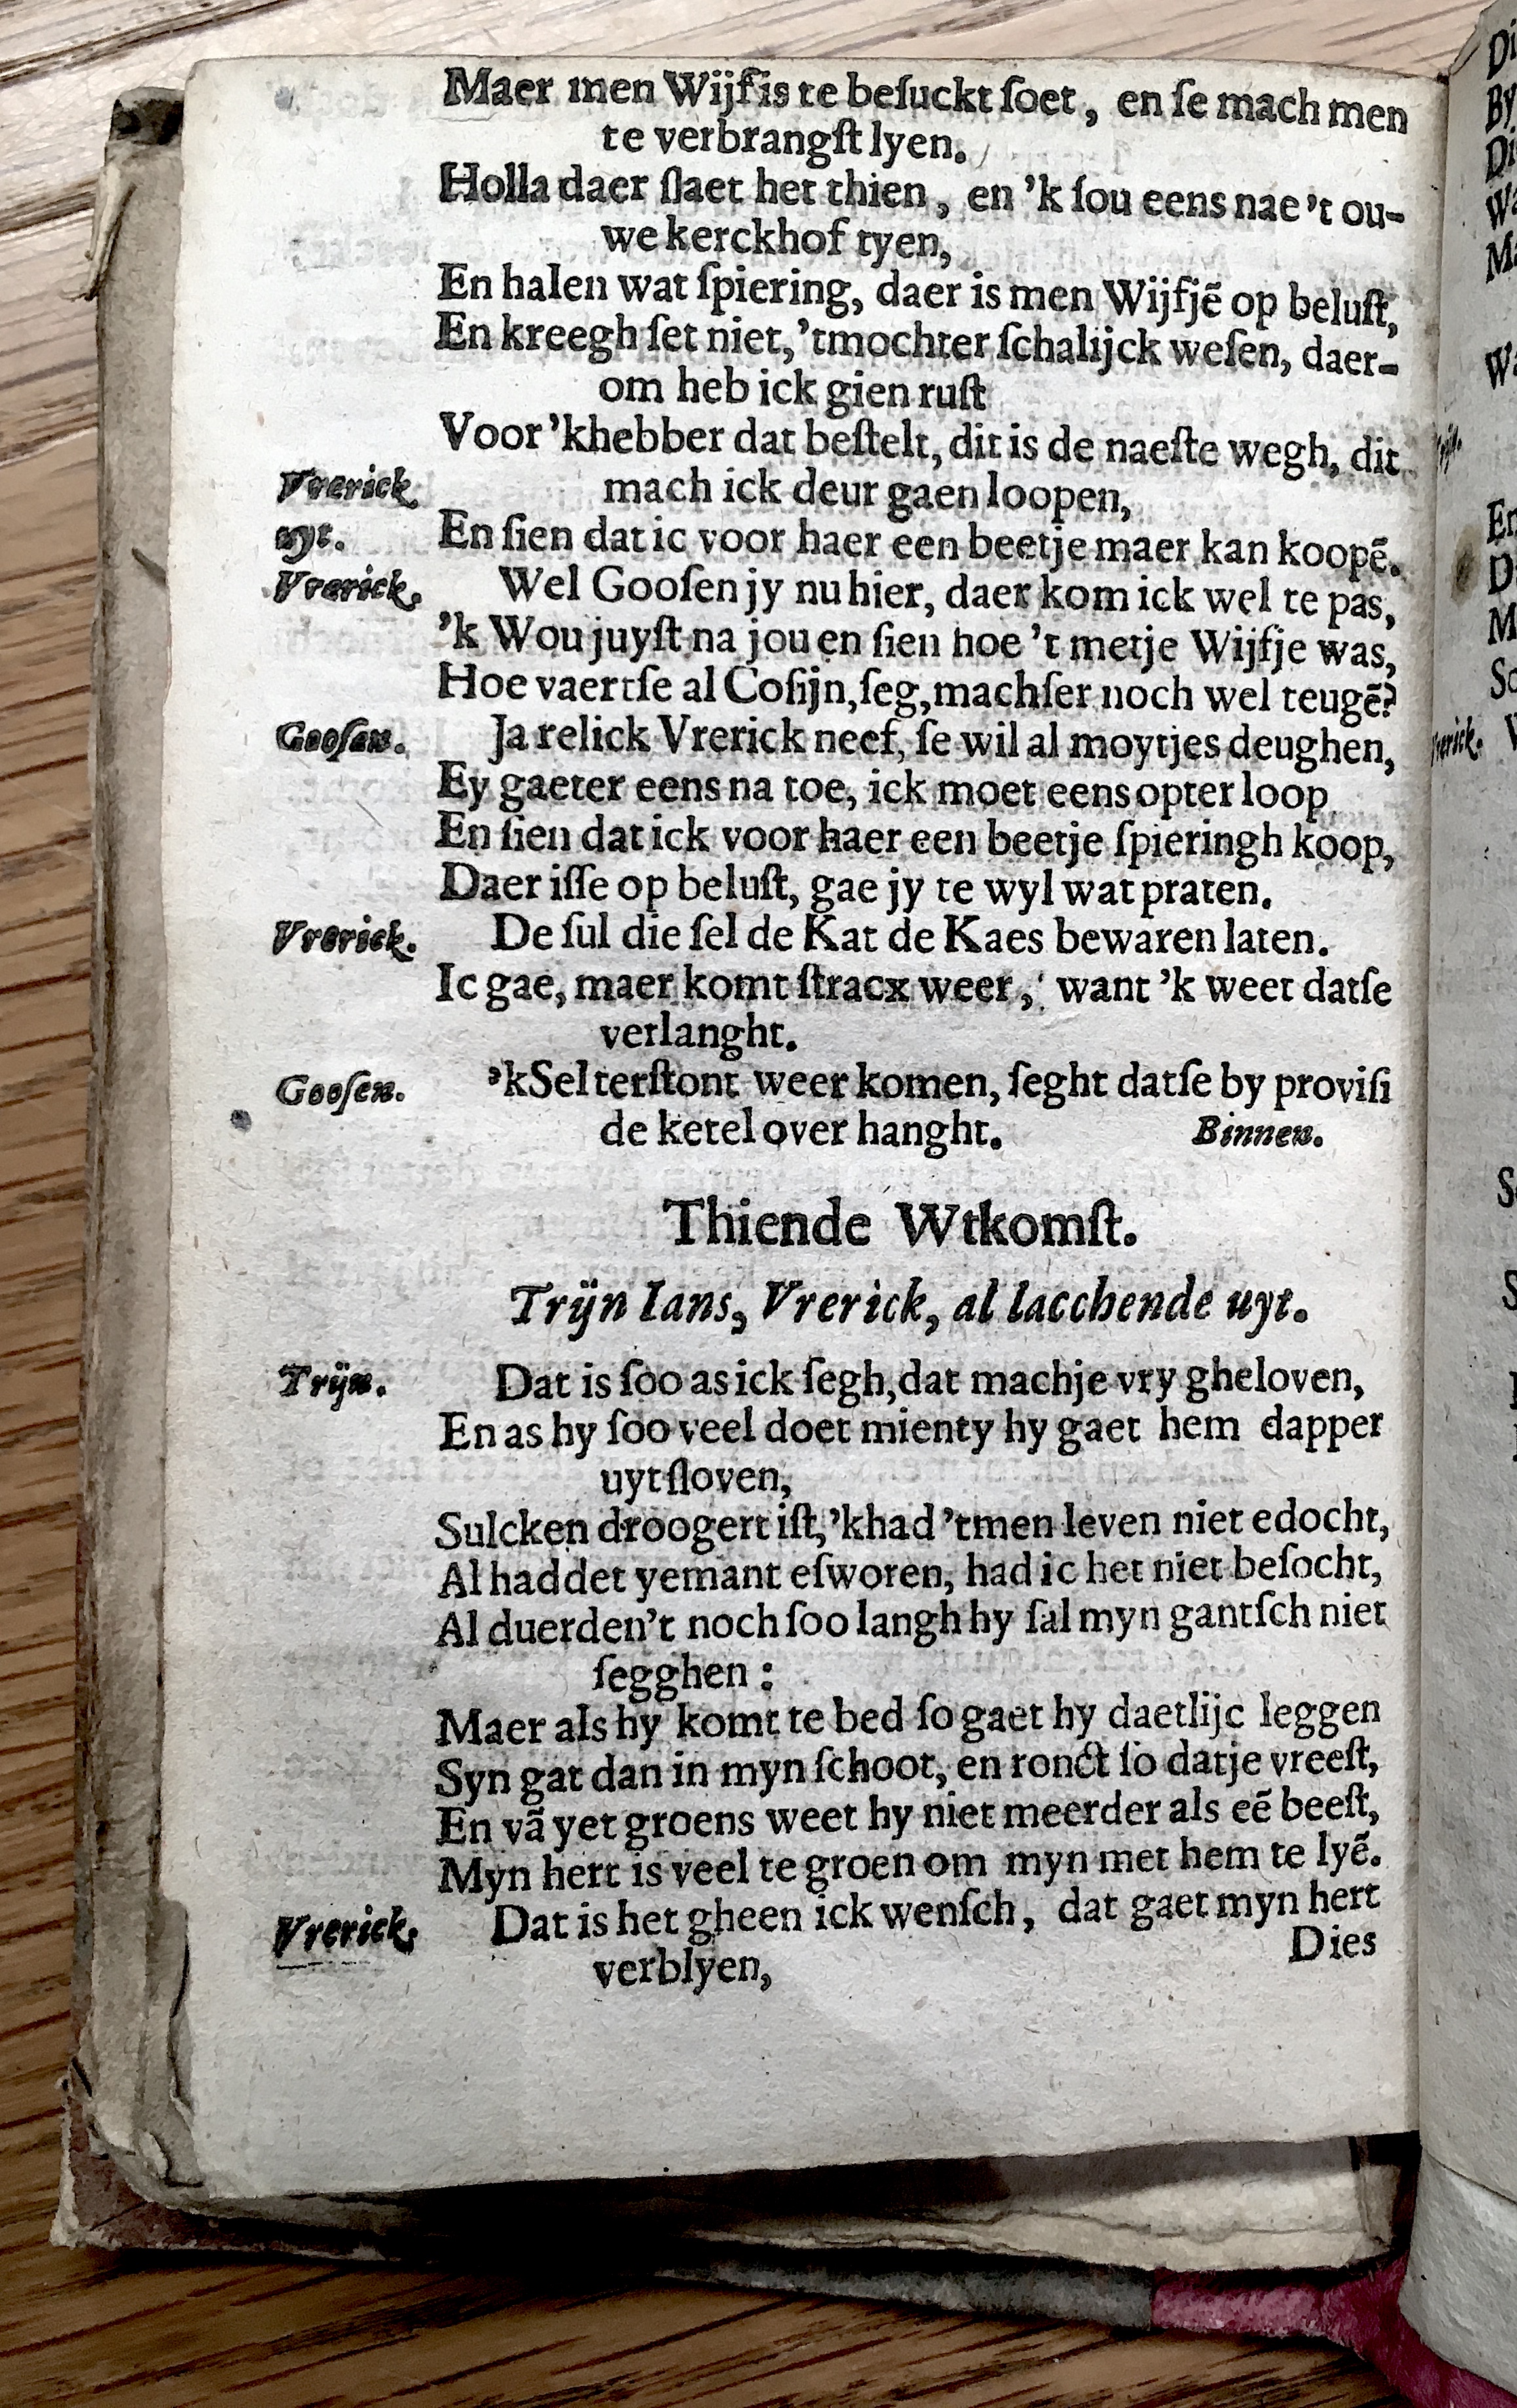 Maer men Wijf is te beſuckt ſoet, en ſe mach men
te verbrangſt lyen.
Holla daer ſlaet het thien, en 'k ſou eens nae 't ou-
we kerckhof tyen,
En halen wat ſpiering, daer is men Wijfjē op beluſt,
En kreegh ſet niet, 'tmochter ſchalijck weſen, daer-
om heb ick gien ruſt
Voor 'khebber dat beſtelt, dit is de naeſte wegh, dit
Vrerick mach ick deur gaen loopen,
uyt. En ſien dat ic voor haer een beetje maer kan koopē.
Vrerick. Wel Gooſen jy nu hier, daer kom ick wel te pas,
'k Wou juyſt na jou en ſien hoe 't metje Wijfje was,
Hoe vaertſe al Coſijn, ſeg, machſer noch wel teugē?
Gooſen. Ja relick Vrerick neef, ſe wil al moytjes deughen,
Ey gaeter eens na toe, ick moet eens opter loop
En ſien dat ick voor haer een beetje ſpieringh koop,
Daer iſſe op beluſt, gae jy te wyl wat praten.
Vrerick. De ſul die ſel de Kat de Kaes bewaren laten.
Ic gae, maer komt ſtracx weer, want 'k weet datſe
verlanght.
Gooſen. 'kSel terſtont weer komen, ſeght datſe by proviſi
de ketel over hanght. Binnen.
Thiende Wtkomſt.
Trijn Ians, Vrerick, al lacchende uyt.
Trijn. Dat is ſoo as ick ſegh, dat machje vry gheloven,
En as hy ſoo veel doet mienty hy gaet hem dapper
uytſloven,
Sulcken droogert iſt, 'khad 'tmen leven niet edocht,
Al haddet yemant eſworen, had ic het niet beſocht,
Al duerden't noch ſoo langh hy ſal myn gantſch niet
ſegghen:
Maer als hy komt te bed ſo gaet hy daetlijc leggen
Syn gat dan in myn ſchoot, en ronct ſo datje vreeſt,
En vā yet groens weet hy niet meerder als eē beeſt,
Myn hert is veel te groen om myn met hem te lyē.
Vrerick. Dat is het gheen ick wenſch, dat gaet myn hert
verblyen,
Dies